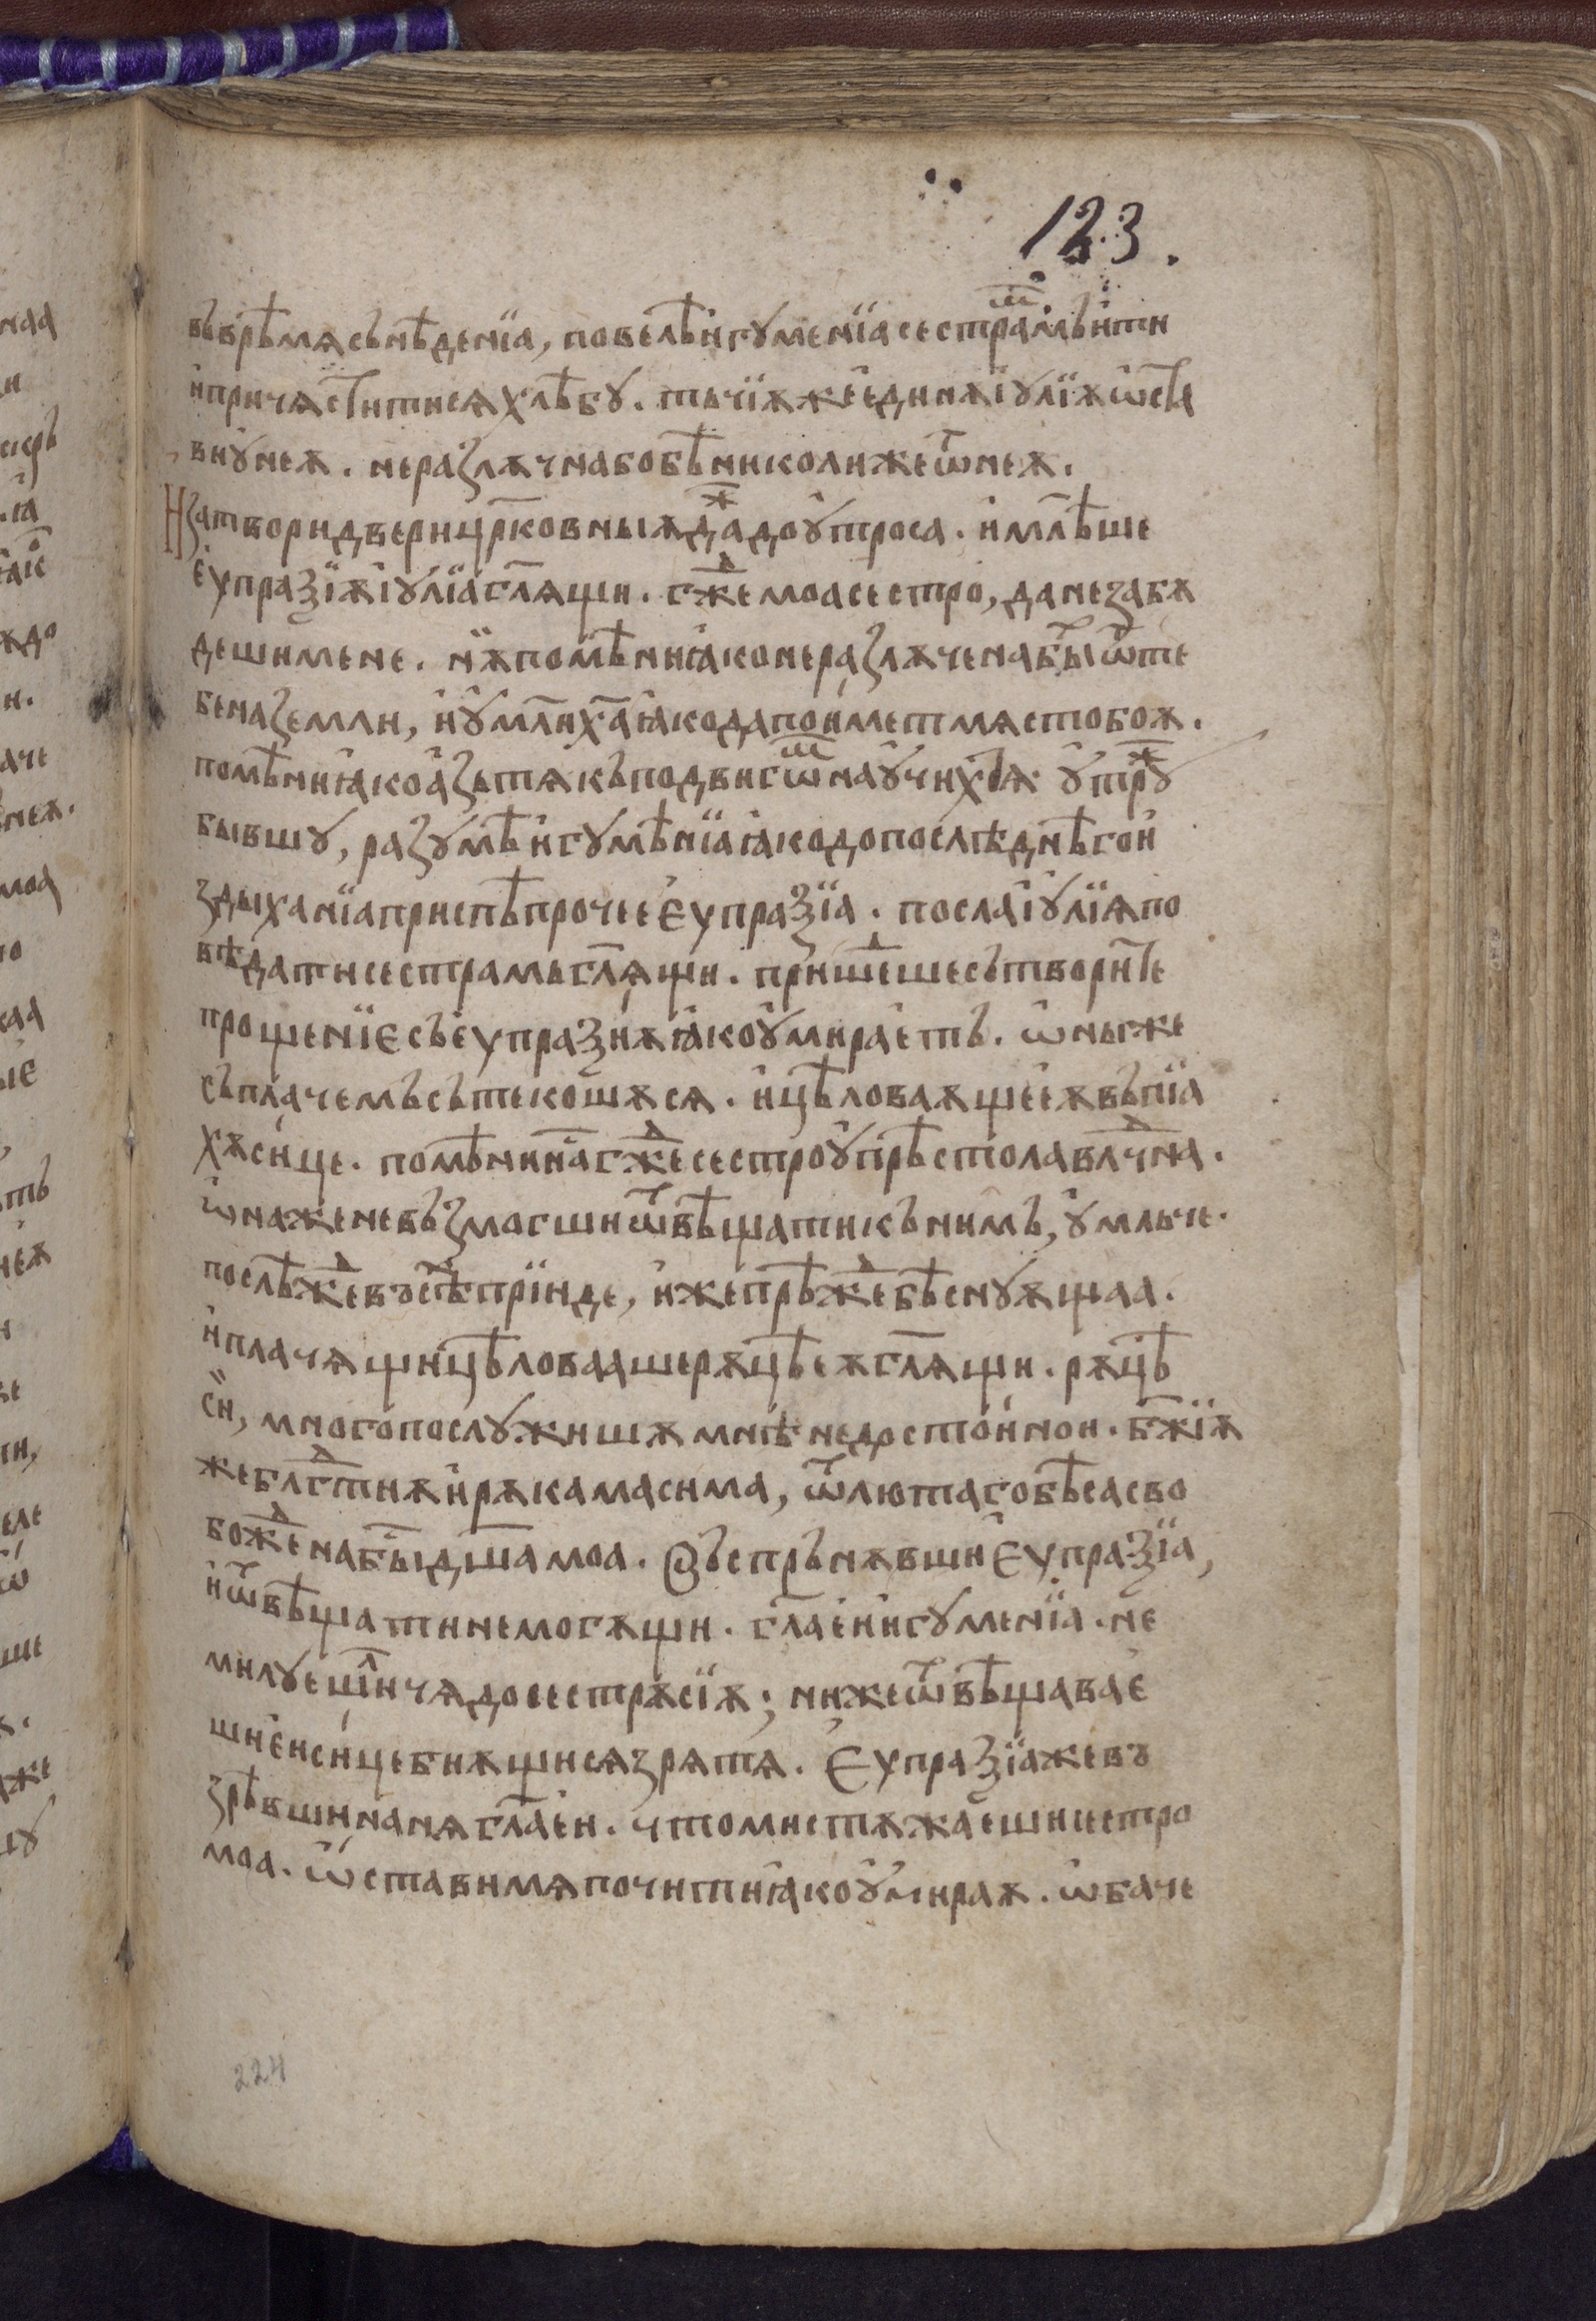 123.
въврѣмѧсънѣденїа, повелѣигꙋменїасестра́мъити
ипричѧститисѧхлѣбꙋ. тъчїѫжеединѫїꙋлїѫѡ҆ста
виꙋнеѫ. неразлѫчнабобѣниколижеѿнеѫ.
Изатворидверицр҃ковныѫдаждоꙋтроса. имл҃ѣше
еѵпраѯїѫїꙋлїагл҃ѧщи. гжⷣемоасестро, данезабѫ
дешимене. нѫпомѣниꙗконеразлѫченабых҃ѿте
беназемли, иꙋмл҃иха҃ꙗкодапоиметмѧстобоѫ.
помѣниꙗкоазътѧкъподвигѡ҆мнаꙋчихтѧ ꙋтрꙋж
бывшꙋ, разꙋмѣигꙋмѣнїаꙗкодопослѣднѣгои
здыханїаприспѣпрочееЕѵпраѯїа. послаїꙋлїѧпо
вѣдатисестрамъгл҃ѧщи. пришеⷣшесътворите
прощенїЕсъеѵпраѯиѫꙗкоꙋмираетъ. ѡ҆ныже
съплачемъсътекошѫсѧ. ицѣловаѫщееѫвъпїа
хѫсице. помѣнинагжⷣесестроꙋпрѣстолавлⷣчна.
ѡ҆наженевъзмогшиѿвѣщатикънимъ, ꙋмлъче.
послѣжⷣевъсѣⷯпрїиде, ижепрѣжⷣебѣснꙋѫщаа.
иплачѧщицѣловаашерѫцѣеѫгл҃ѧщи. рѫцѣ
сїи, многопослꙋжишѫмнѣнедостоинои. бж҃їѫ
жеблгⷣтиѫирѫкамасима, ѿлютагобѣсасво
божⷣенабыⷭдш҃амоа. Ѳъспрънѫвши҆Еѵпраѯїа,
иѿвѣщатинемогѫщи. гл҃аеиигꙋменїа. не
милꙋешилⷤичѧдосестрѫсїѫ; нижеѿвѣщавае
шиеисицебиѫщисѧзрѧтѧ. Еѵпраѯїажевъ
зрѣвшинанѧгл҃аеи. чтомистѫжаешисестро
моа. ѡ҆ставимѧпочитиꙗкоꙋмираѫ. ѡ҆баче
224